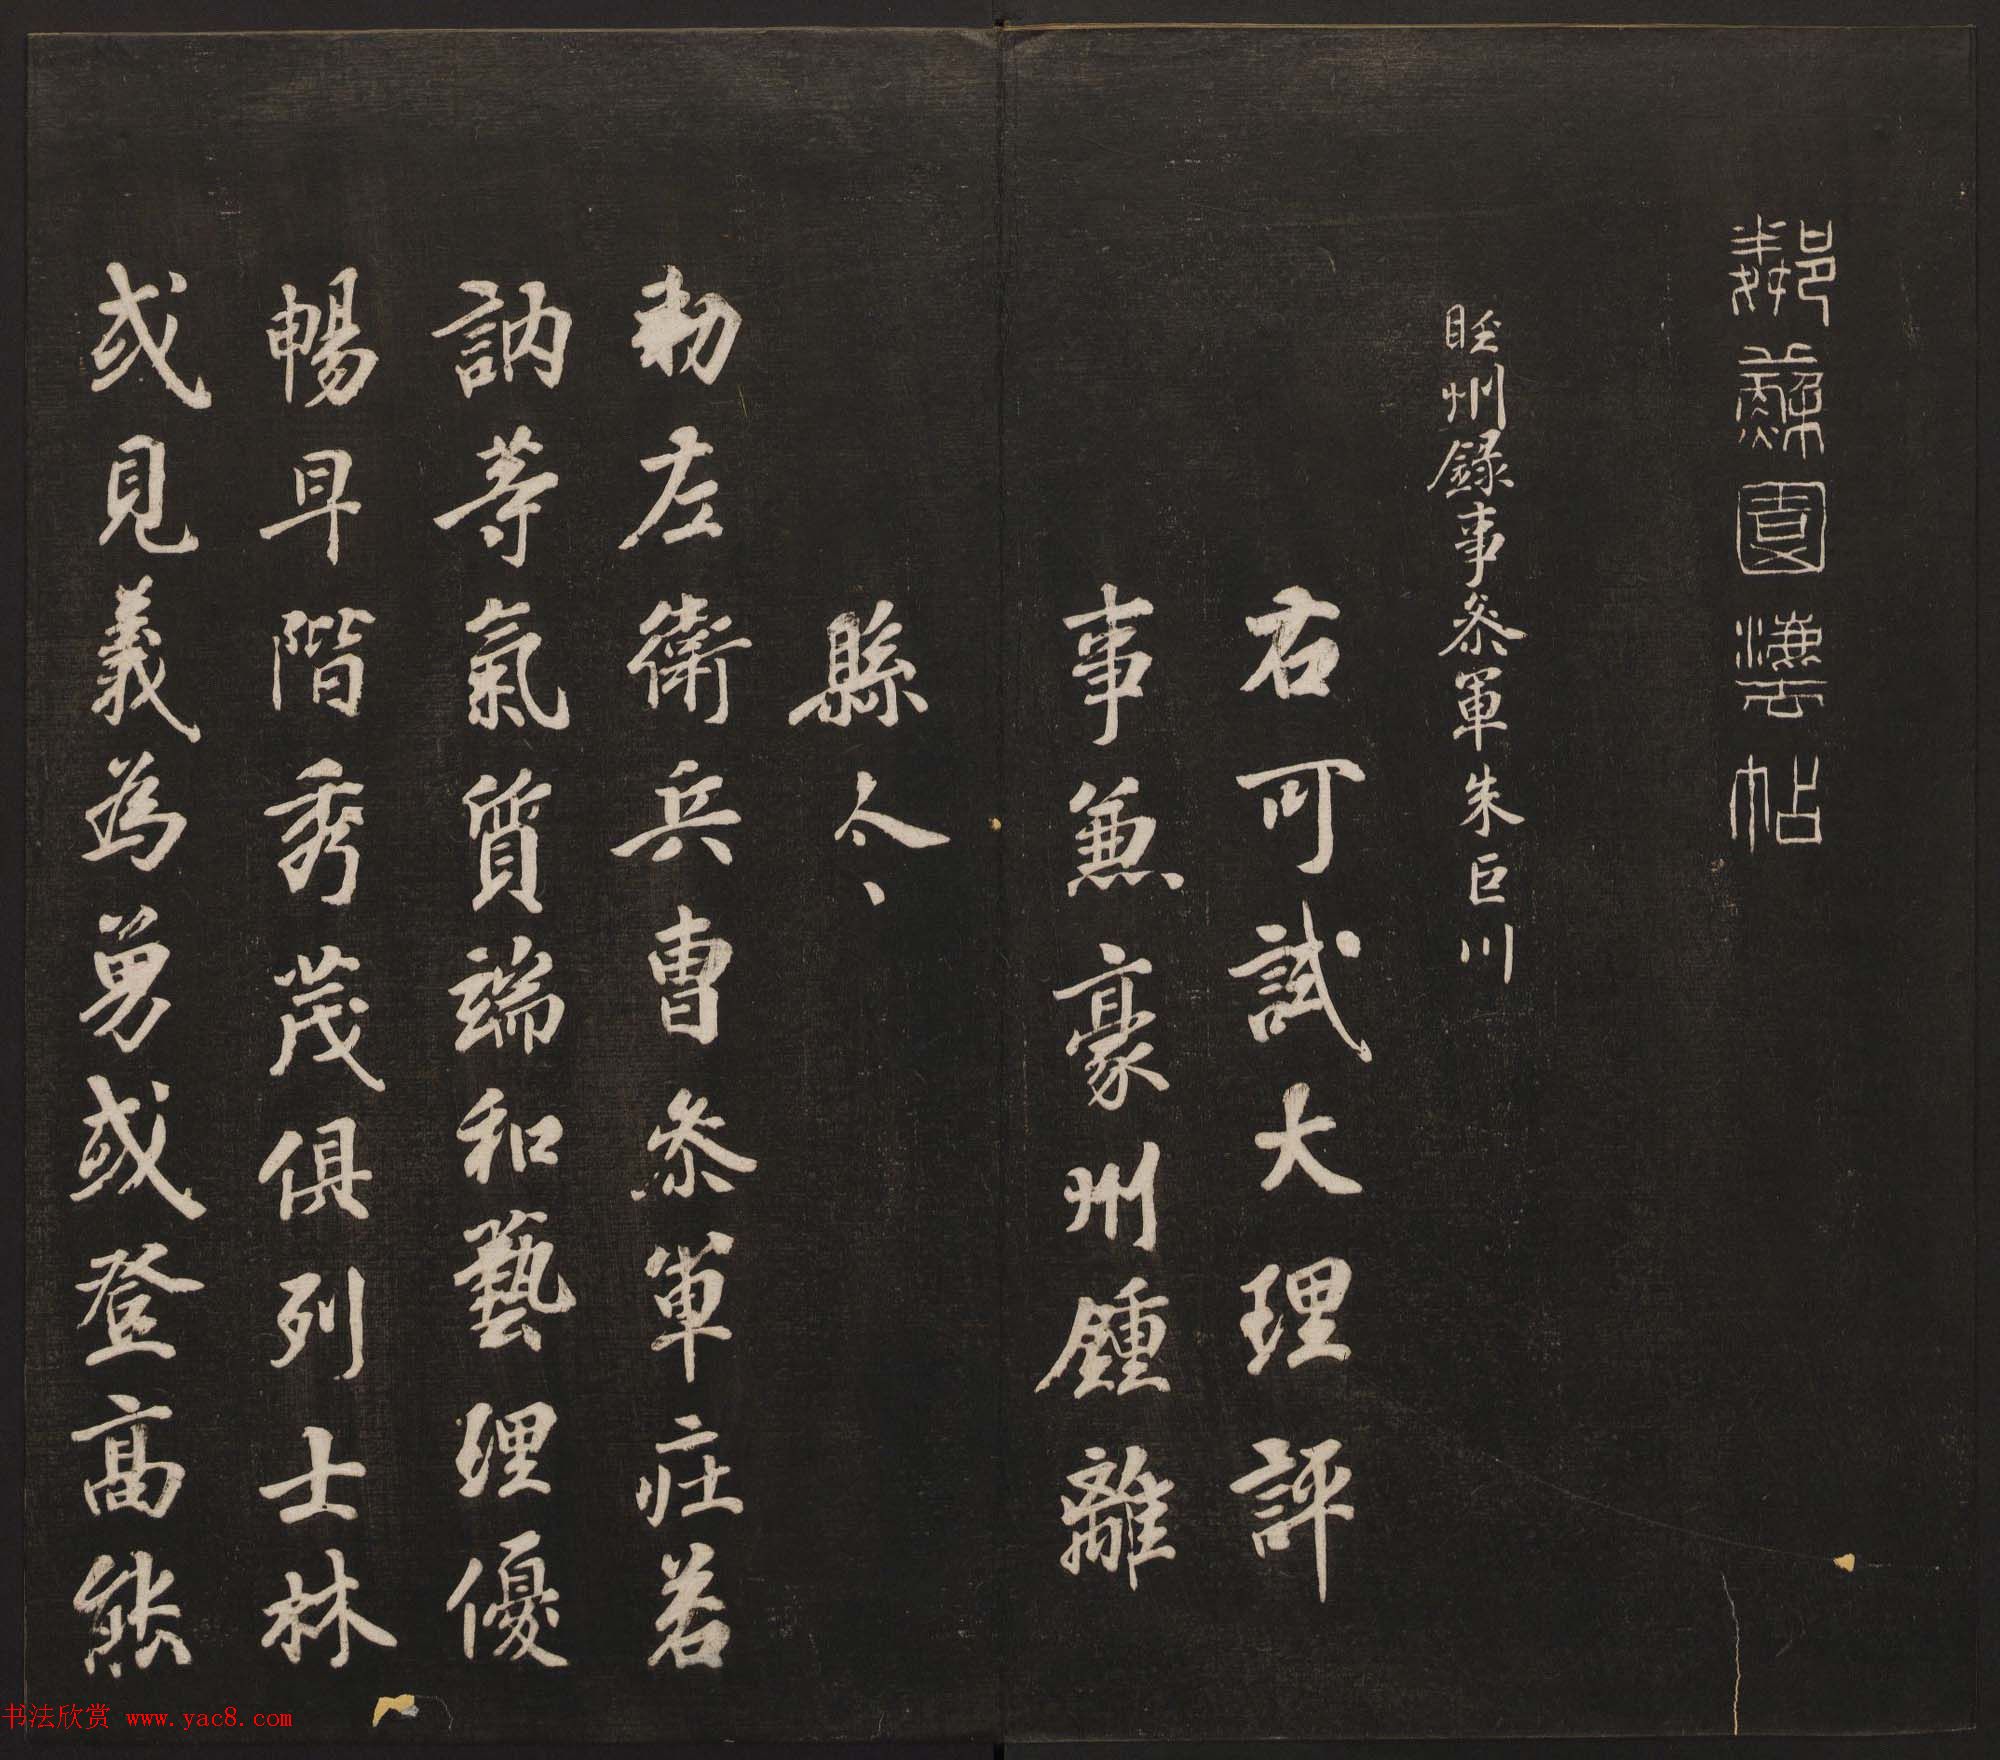 鄰蘇園法帖
睦州錄事參軍朱巨川
右可試大理評
事兼豪州鍾離
縣令
勑左衛兵曹參軍莊若
訥等氣質端和藝理優
暢早階秀茂俱列士林
或見義為勇或登高能
书法欣赏 www.yac8.com